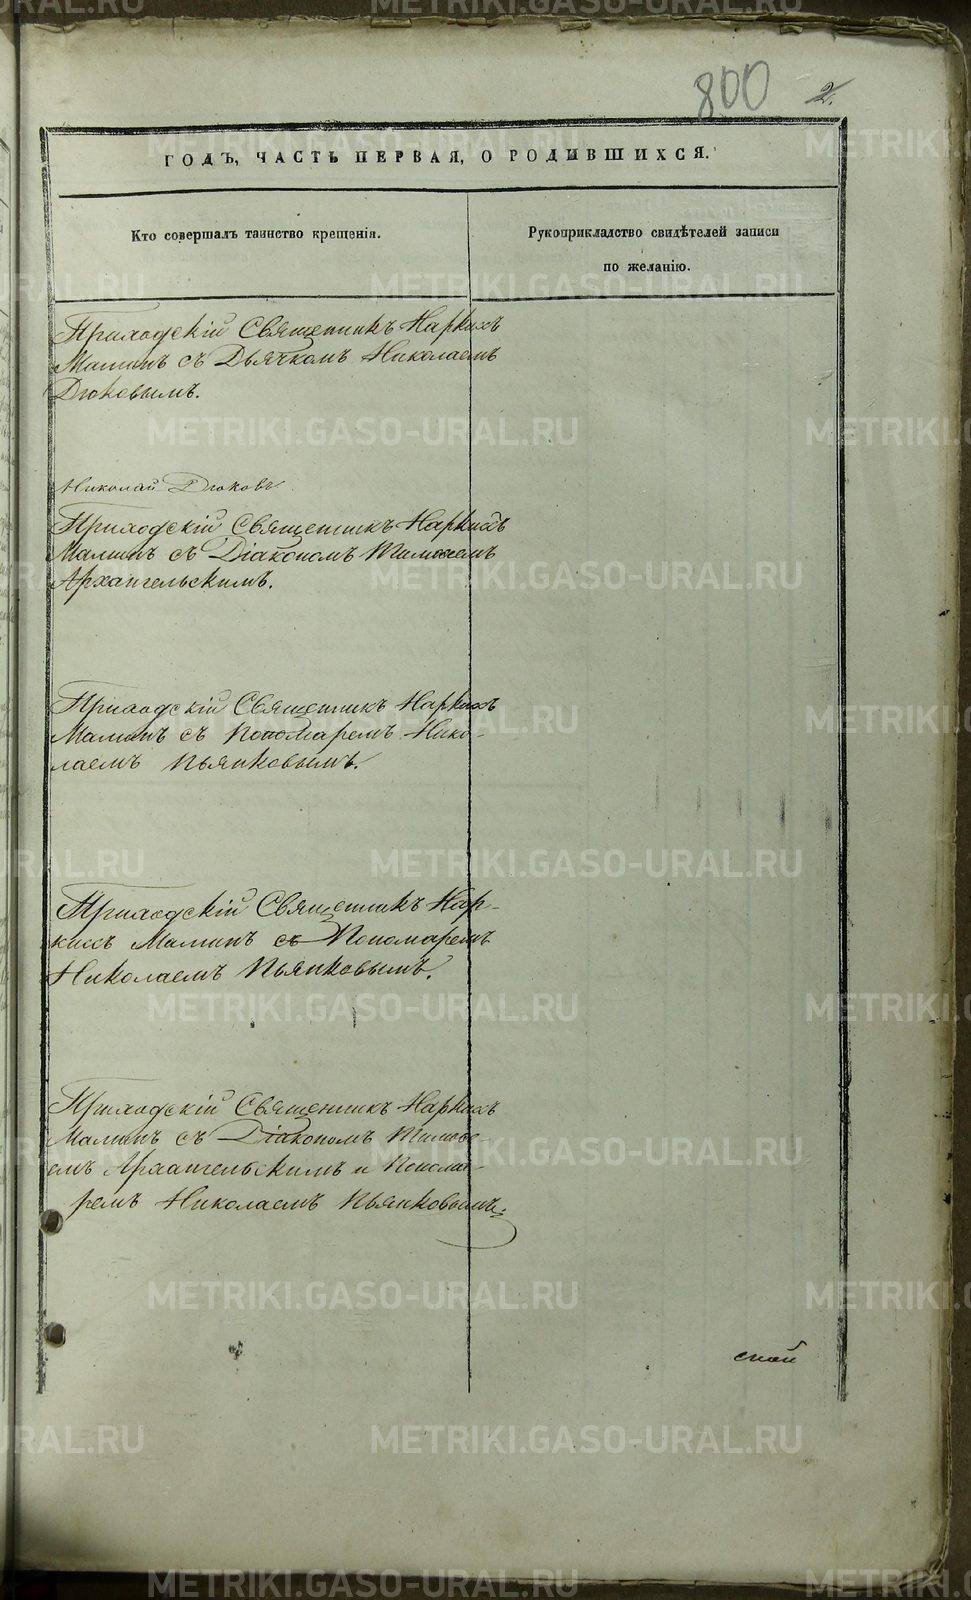 800 2.
ГОДЪ, ЧАСТЬ ПЕРВАЯ, О РОДЫВШИХСЯ.
Кто совершалъ таинство крещенія.
Рукоприкладство свидѣтелей записи
по желанію.
Приходскій Священникъ Наркиссъ
Малинъ съ Дьячкомъ Николаемъ
Дюковымъ.
Николай Дюковъ
Приходскій Священникъ Наркиссъ
Малинъ съ Діакономъ Тимоѳеемъ
Архангельскимъ.
Приходскій Священникъ Наркиссъ
Малинъ съ Пономаремъ Нико-
лаемъ Пьянковымъ.
Приходскій Священникъ Нар-
киссъ Малинъ съ Пономаремъ
Николаемъ Пьянковымъ.
Приходскій Священникъ Наркиссъ
Малинъ съ Діакономъ Тимоѳе-
емъ Архангельскимъ и Понома-
ремъ Николаемъ Пьянковымъ.
METRIKI.GASO-URAL.RU